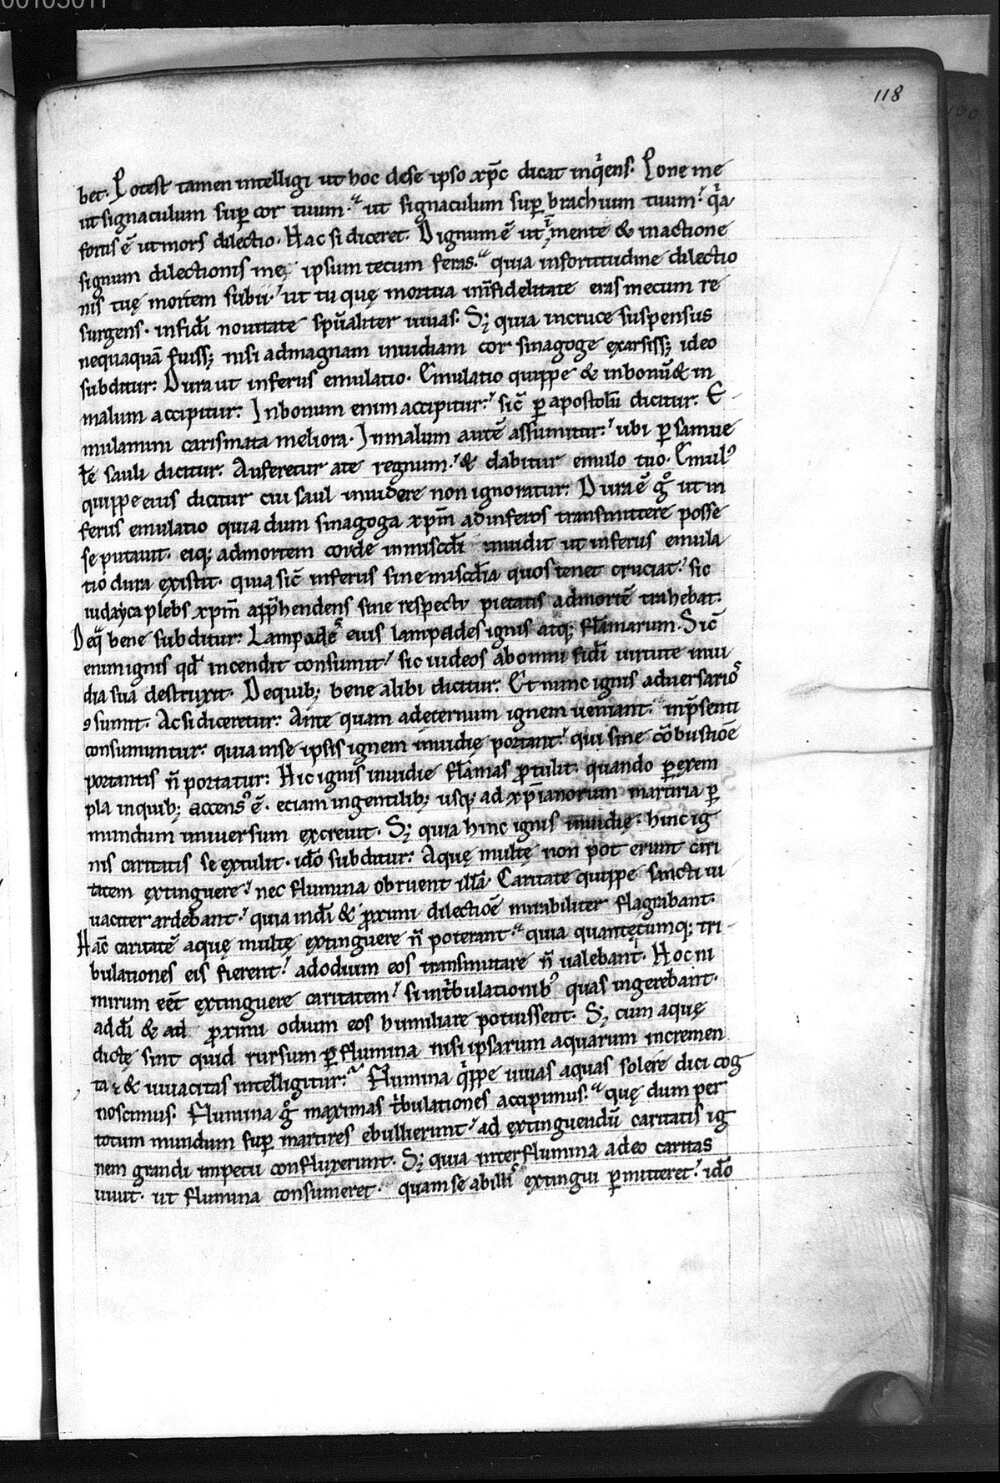 118
bet. Potest tamen intelligi ut hoc dese ipso xp̄c dicat inq̇rens. Pone me
ut signaculum sup̱ cor tuum. ut signaculum sup̱ brachium tuum. q̇a
fortis ē ut mors dilectio. Hac si diceret. Dignum ē ut mente & inactione
signum dilectionis meę ipsum tecum feras. quia infortitudine dilectio
nis tuę mortem subii. ut tu quę mortua in infidelitate eras mecum re
surgens. infid̄i nouitate sp̄ualiter uiuas. S; quia incruce suspensus
nequaquā fuiss; nisi admagnam inuidiam cor sinagoge exarsiss; ideo
subditur: Dura ut inferus emulatio. Emulatio quippe & inbonū & in
malum accipitur: Inbonum enim accipitur. sic̄ p̱ apostolū dicitur. E
mulamini carismata meliora. Inmalum autē assumitur. ubi p̱ samue
lē sauli dicitur. Auferetur ate regnum. & dabitur emulo tuo. Emul᾽
quippe eius dicitur cui saul inuidere non ignoratur. Dura ē g̊ ut in
ferus emulatio quia dum sinagoga xp̄m ad inferos transmittere posse
se putauit. eiq; admortem corde inmisc̄di inuidit ut inferus emula
tio dura existit. quia sic̄ inferus sine misc̄dia quos tenet cruciat. sic
iudayca plebs xp̄m app̄hendens sine respectu pietatis admortē trahebat.
Deq̄ bene subditur: Lampades eius lampades ignis atq; flāmarum. Sic̄
enim ignis qd̄ incendit consumit. sic iudeos abomni fidi uirtute inui
dia sua destruxit. Dequib; bene alibi dicitur. Et nunc ignis aduersarios
ꝯsumit. Ac si diceretur: Ante quam adeternum ignem ueniant. inp̄senti
consumuntur: quia inse ipsis ignem inuidię portant. qui sine cōbustiōe
portantis n̄ portatur: Hic ignis inuidie flāmas ꝓtulit. quando p̱ exem
pla inquib; accens᾽ ē. etiam ingentilib; usq; ad xp̄ianorum martiria p̱
mundum uniuersum excreuit. S; quia hinc ignis inuidię. hinc ig
nis caritatis se extulit. id̄o subditur: Aquę multę non pot̄erunt cari
tatem extinguere. nec flumina obruent illā. Caritate quippe sancti ui
uaciter ardebant. quia ind̄i & ꝓximi dilectiōe mirabiliter flagrabant.
Hāc caritatē aquę multę extinguere n̄ poterant. quia quantęcumq; tri
bulationes eis fierent. adodium eos transmutare n̄ ualebant. Hoc ni
mirum eēt extinguere caritatem. si intrbulationib᾽ quas ingerebant.
add̄i & ad ꝓximi odium eos humiliare potuissent. S; cum aquę
dictę sint quid rursum p̱ flumina nisi ipsarum aquarum incremen
ta & uiuacitas intelligitur. Flumina q̇ppe uiuas aquas solere dici cog
noscimus. Flumina g̊ maximas tbulationes accipimus. quę dum per
totum mundum sup̱ martires ebullierunt. ad extinguendū caritatis ig
nem grandi impetu confluxerunt. S; quia interflumina adeo caritas
uiuit. ut flumina consumeret. quamse abillis extingui p̱mitteret. id̄o